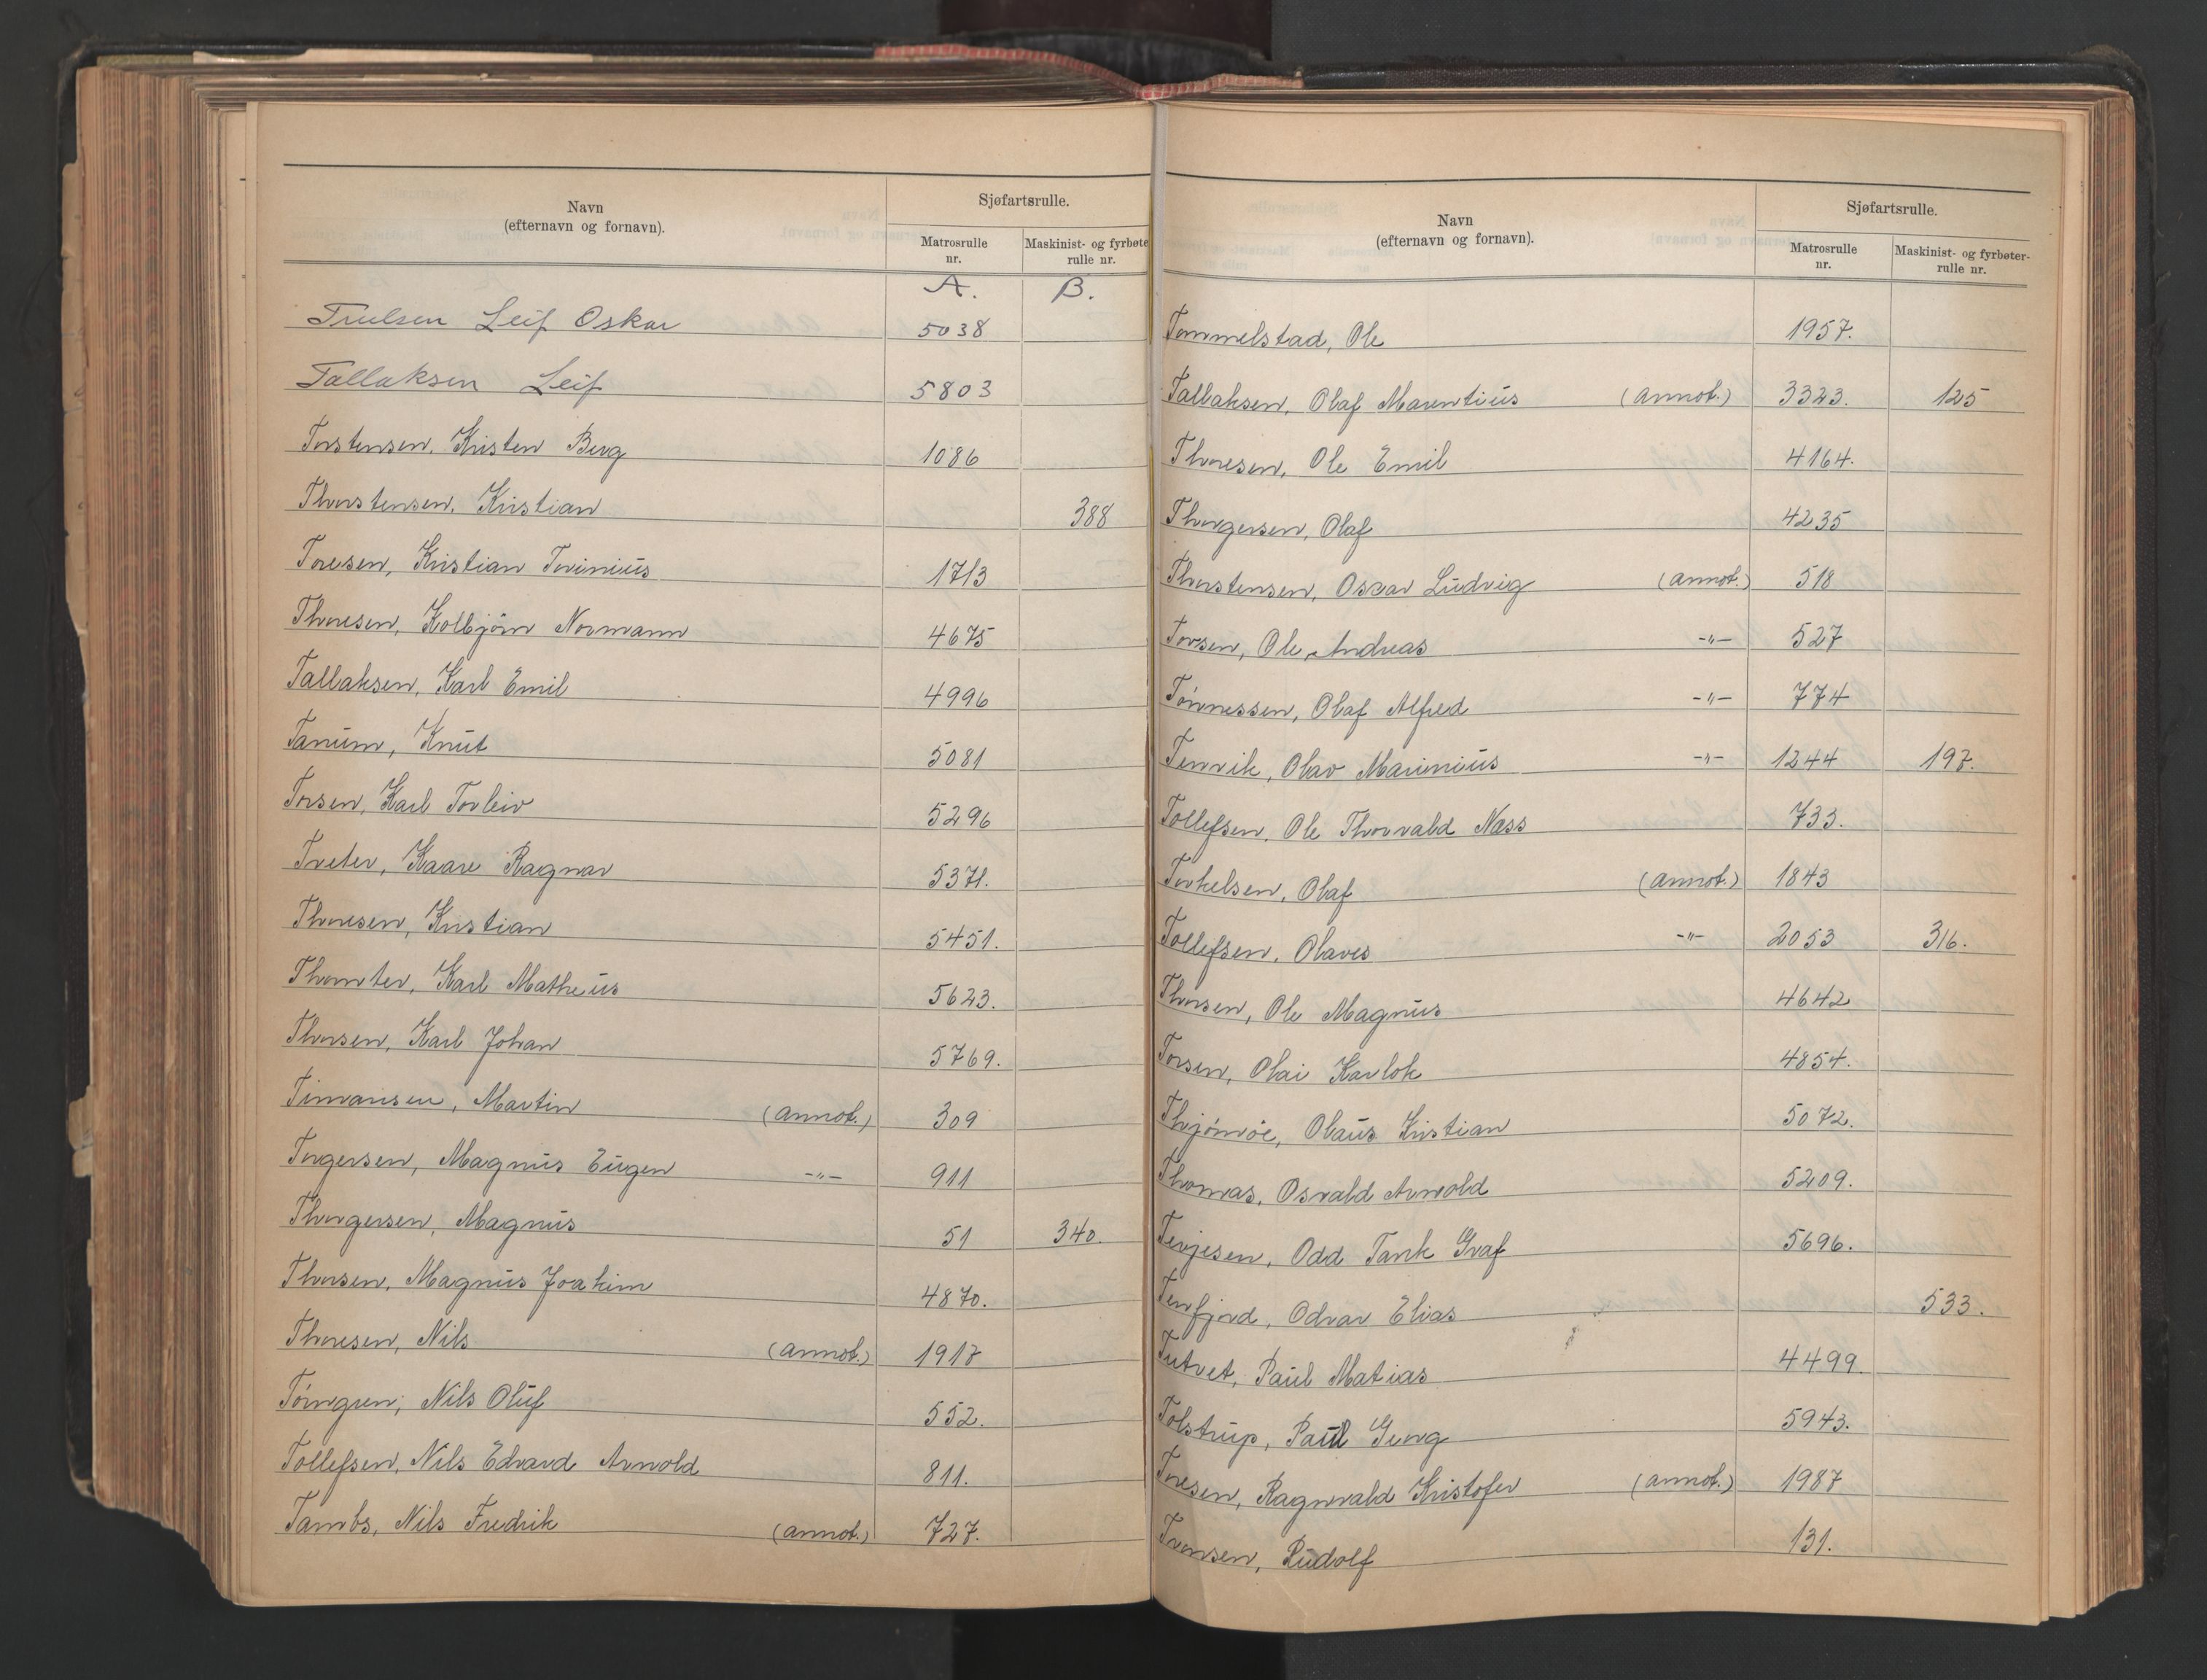 Navn
(efternavn og fornavn).
Sjøfartsrulle.
Matrosrulle nr.
Maskinist- og fyrbøte rulle nr.
A. B.
Truelsen Leif Oskar 5038
Tallaksen Leif 5803
Torstensen, Kristen Berg 1086
Thorstensen, Kristian 388
Toresen, Kristian Torinius 1713
Thoresen, Kolbjörn Normann 4675
Tallaksen, Karl Emil 4996
Tanum, Knut 5081
Torsen, Karl Torleiv 5296
Treter, Kaare Ragnar 5371.
Thoresen, Kristian 5451.
Thomter, Karl Matheus 5623.
Thorsen, Karl Johan 5769.
Timansen, Martin (annot.) 309
Torgersen, Magnus Eugen -"- 911
Thorgersen, Magnus 51 340.
Thorsen, Magnus Joakim 4870.
Thoresen, Nils (annot.) 1917
Törngren, Nils Oluf 552.
Tollefsen, Nils Edvard Arnold 811.
Tambs, Nils Fredrik (annot.) 727.
Navn
(efternavn og fornavn).
Sjøfartsrulle.
Matrosrulle nr.
Maskinist- og fyrbøter- rulle nr.
Tommelstad, Ole 1957.
Tallaksen, Olaf Marentius (annot.) 3323. 125
Thoresen, Ole Emil 4164.
Thorgersen, Olaf 4235
Thorstensen, Oscar Ludvig (annot.) 518
Torsen, Ole Andreas -"- 527
Tönnessen, Olaf Alfred -"- 774
Tenvik, Olav Marinius -"- 1244 197.
Tollefsen, Ole Thorvald Næss 733.
Torkelsen, Olaf (annot.) 1843
Tollefsen, Olaves -"- 2053 316.
Thorsen, Ole Magnus 4642
Torsen, Olai Karlok 4854.
Thjömöe, Olaus Kristian 5072.
Thomas, Osvald Arnold 5209.
Terjesen, Odd Tank Graf 5696.
Tenfjord, Odvar Elias 533.
Tutvet, Paul Matias 4499.
Tolstrup, Paul Georg 5943.
Toresen, Ragnvald Kristofer (annot.) 1987
Tronsen, Rudolf 131.